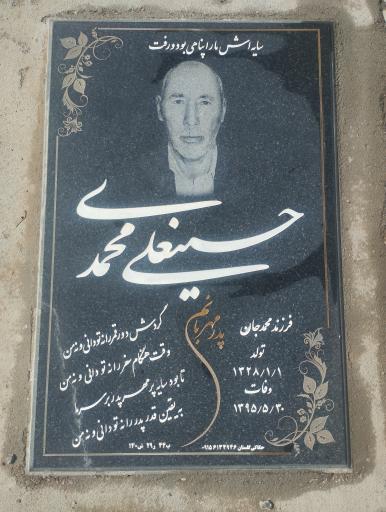 سایه اش ما را پناهی بود و رفت
حسینعلی محمدی
پدر مهربانم
فرزند محمدجان
تولد
۱۳۲۸/۱/۱
وفات
۱۳۹۵/۵/۳۰
گردش دور قمر را نه تو دانی و نه من
وقت هنگام سفر را نه تو دانی و نه من
تا بود سایه پر مهر پدر بر سر ما
بر یقین قدر پدر را نه تو دانی و نه من
حکاکی گلستان ۰۹۱۵۶۱۳۳۹۴۶